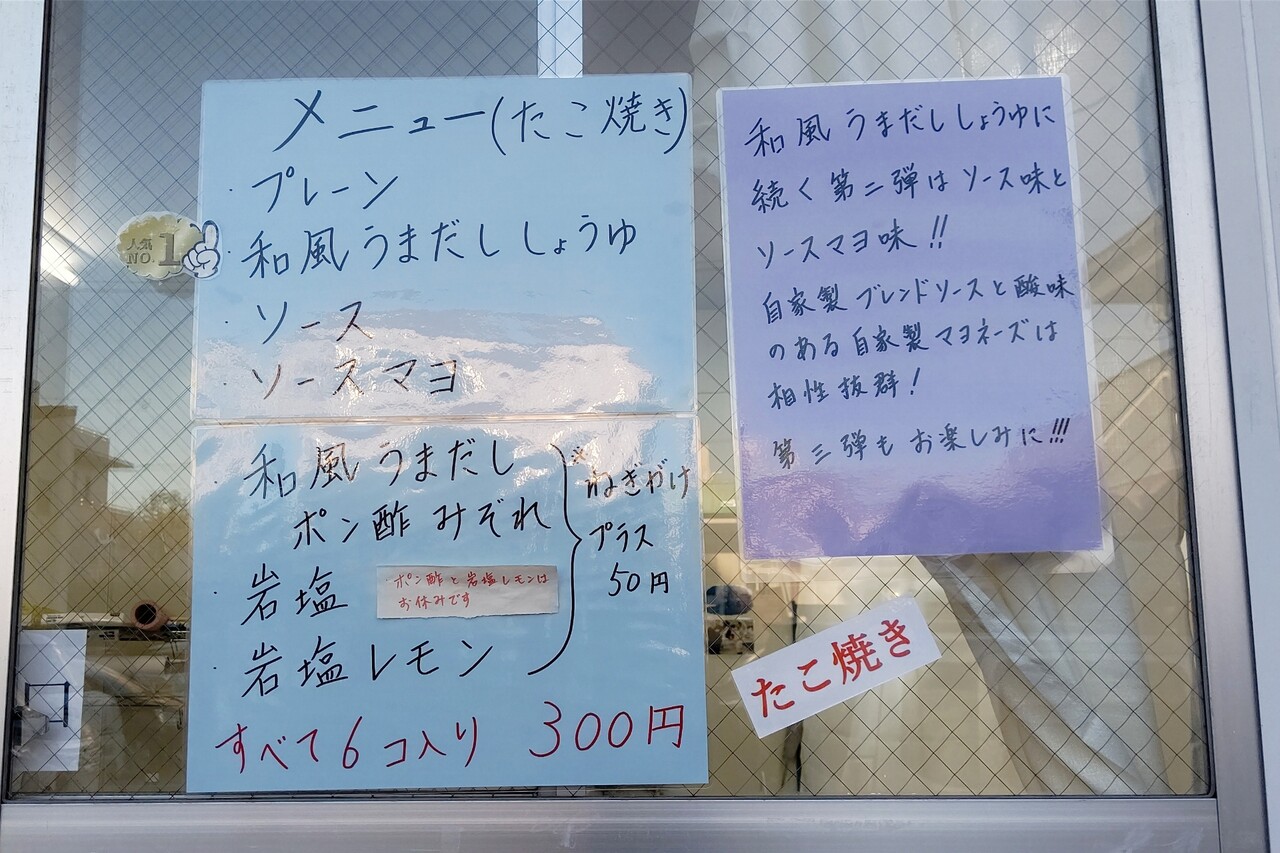 メニュー(たこ焼き)
・プレーン
人気
NO.1
・和風うまだししょうゆ
・ソース
・ソースマヨ
・和風うまだし
ポン酢みぞれ
・岩塩
・岩塩レモン
※ねぎがけ
プラス
50円
ポン酢と岩塩レモンは
お休みです
すべて6コ入り 300円
和風うまだししょうゆに
続く第二弾はソース味と
ソースマヨ味!!
自家製ブレンドソースと酸味
のある自家製マヨネーズは
相性抜群!
第三弾もお楽しみに!!!
たこ焼き